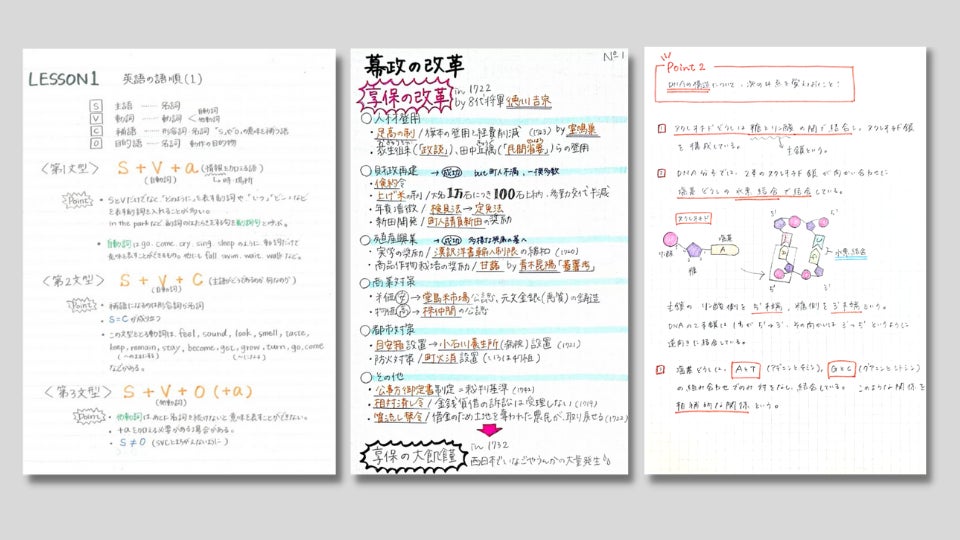 LESSON1 英語の語順(1)
S 主語 …… 名詞
V 動詞 …… 動詞 < 自動詞 他動詞
C 補語 …… 形容詞・名詞 "Sが","Oが"の意味を補う語
O 目的語 …… 名詞 動作の目的物
〈第1文型〉 S+V+a (情報を加える語)
(自動詞) 時・場所
Point
in the parkなど
・自動詞は go. come. cry. sing. sleep など、動詞だけで
fall. swim. wait. walk など。
〈第2文型〉 S+V+C
(自動詞)
Point ・補語になるのは形容詞か名詞
・S=Cが成り立つ
feel, sound, look, smell, taste,
keep, remain, stay, become, get, grow, turn, go, come
などがある。
〈第3文型〉 S+V+O (+a)
(他動詞)
Point ・他動詞はあとに名詞を続けないと意味を表すことができない。
・+aを加える必要がある場合がある。
・S≠0
幕政の改革 No1
享保の改革 in 1722
by 8代将軍 徳川吉宗
○人材登用
・足高の制/旗本の登用と経費削減 (1723) by 室鳩巣
・荻生徂徠「政談」、田中丘隅「民間省要」らの登用
○財政再建 → 成功 but 町人不満、一揆多数
・倹約令
・上げ米の制/大名1万石につき100石上納、参勤交代半減
・年貢増徴/検見法→定免法
・新田開発/町人請負新田の奨励
○殖産興業 → 成功
・実学の奨励/漢訳洋書輸入制限の緩和 (1720)
・商品作物栽培の奨励/甘藷 by 青木昆陽「蕃薯考」
○商業対策
・米価安→堂島米市場公認、元文金銀(角質)の鋳造
・物価高→株仲間の公認
○都市対策
・目安箱設置→小石川養生所(病院)設置 (1721)
・防火対策/町火消設置(いろは47組)
○その他
・公事方御定書制定=裁判基準 (1742)
・相対済し令/金銭貸借の訴訟は受理しない (1719)
・質流し禁令/借金のため土地を奪われた農民が取り返せる (1722)
享保の大飢饉 in 1732
西日本でいなごやうんかの大量発生
Point 2
DNAの構造について、次の4点を覚えよこと!
1 ヌクレオチドどうしは糖とリン酸の間で結合し、ヌクレオチド鎖
を構成している。 主鎖という。
2 DNA分子では、2本のヌクレオチド鎖が向かい合わせに
塩基どうしの水素結合で結合している。
ヌクレオチド
リン酸
糖
塩基
A
5' 3'
水素結合
3' 5'
主鎖のリン酸側を5'末端、糖側を3'末端という。
逆向きに結合している。
塩基どうしは、AとT(アデニンとチミン)、GとC(グアニンとシトシン)
の組み合わせでのみ対をなし、結合している。このような関係を
相補的な関係という。